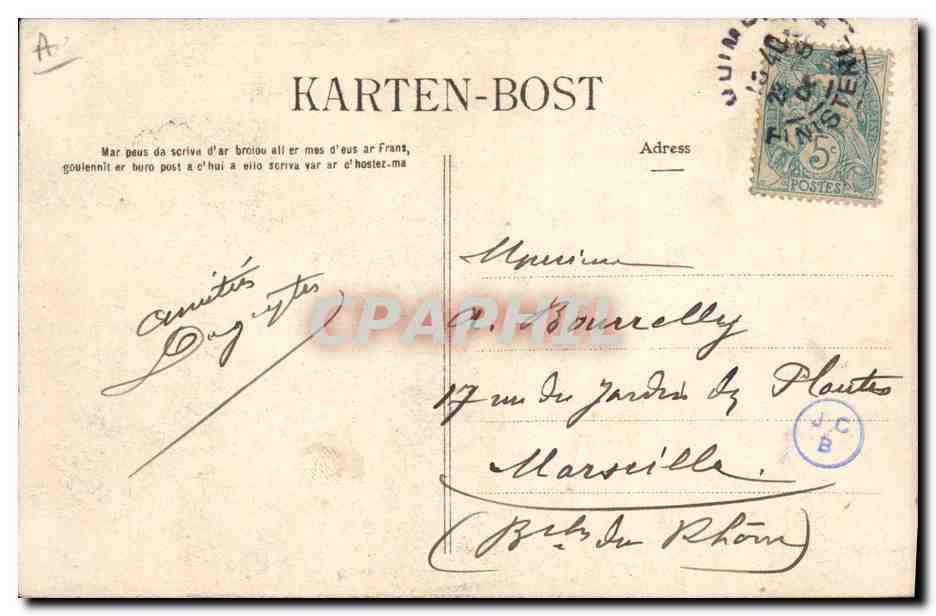 A
KARTEN-BOST
Mar peus da scriva d'ar broiou all er mes d'eus ar Frans,
goulennit er buro post a c'hui a ello scriva var ar c'hostez-ma
Adress
5c
POSTES
amitiés
CPAPHIL
Monsieur
A. Bourrelly
17 rue du Jardin des Plantes
Marseille.
(Bches du Rhône)
J C
B